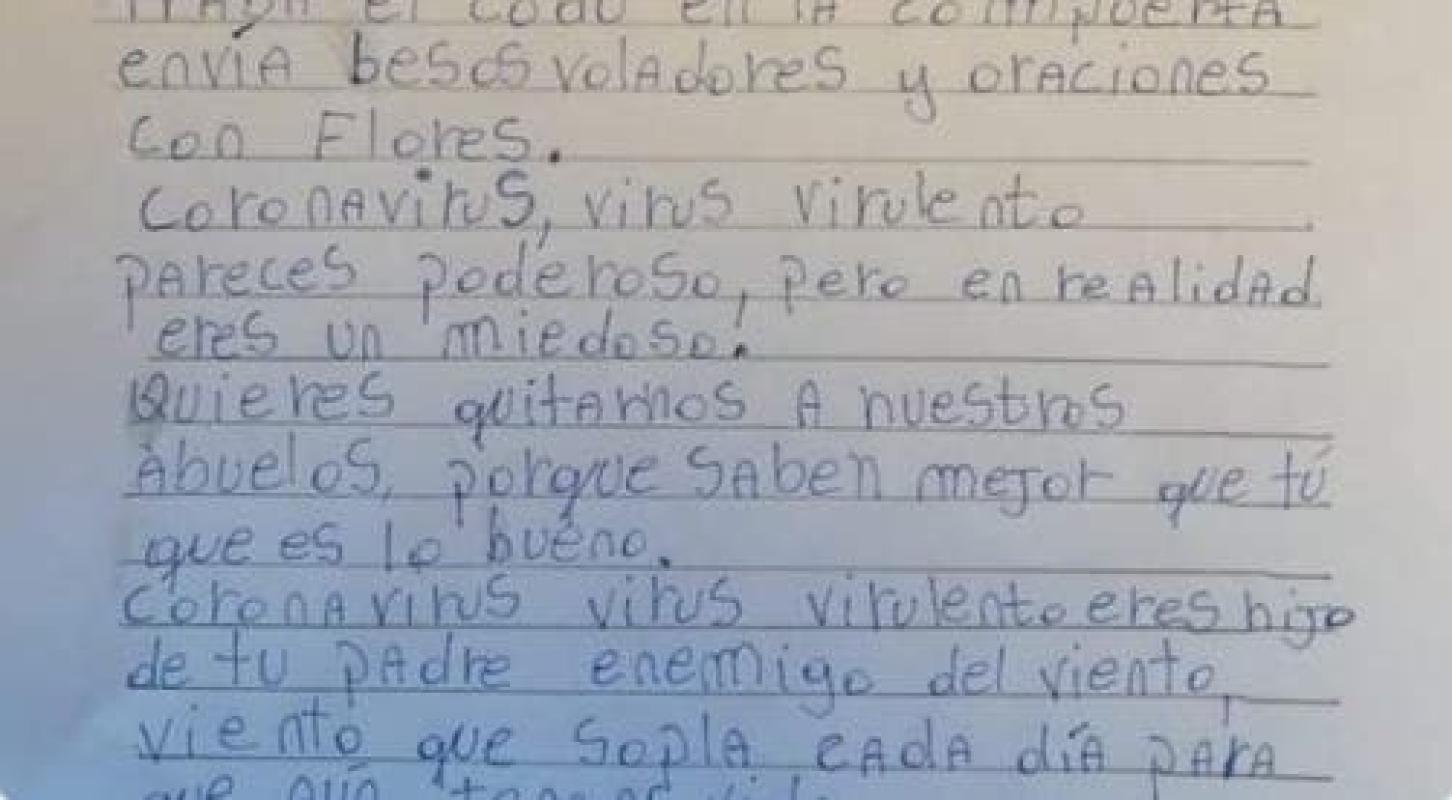 el codo en la compuerta
envía besos voladores y oraciones
con Flores.
Coronavirus, virus virulento
pareces poderoso, pero en realidad
eres un miedoso.
Quieres quitarnos A nuestros
Abuelos, porque saben mejor que tú
que es lo bueno.
Coronavirus virus virulento eres hijo
de tu padre enemigo del viento,
viento que sopla cada día para
que aún